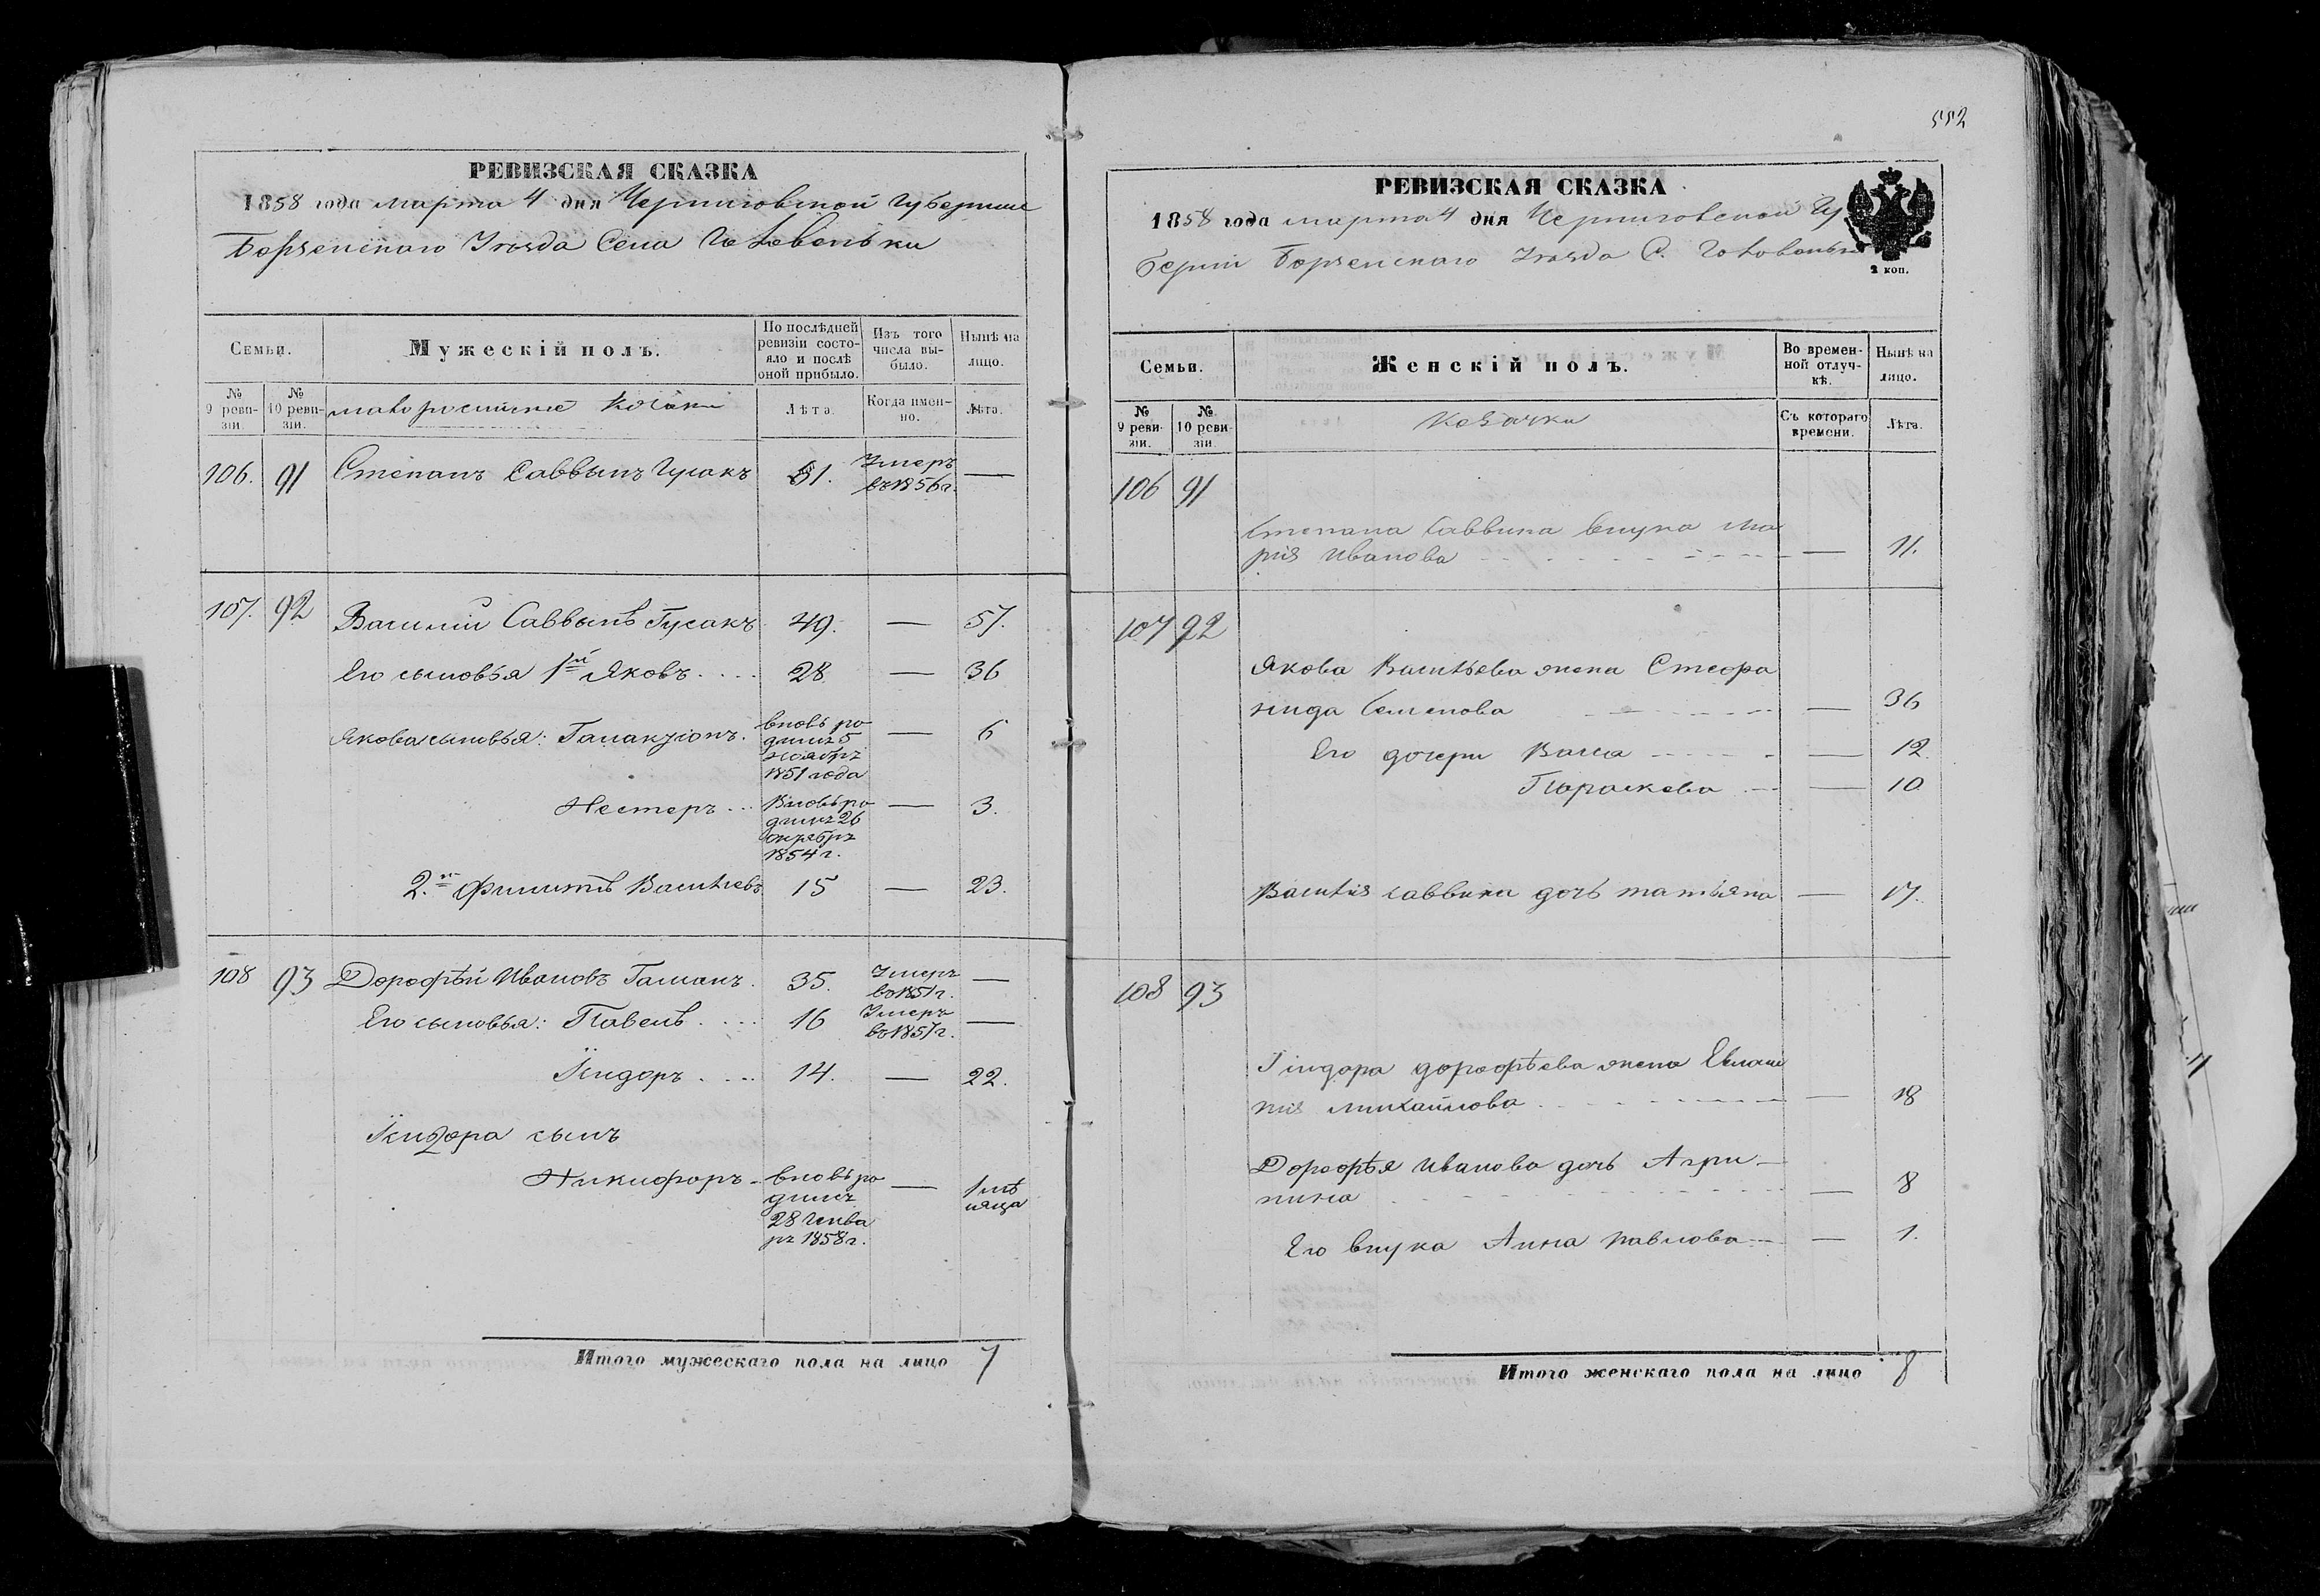 РЕВИЗСКАЯ СКАЗКА
1858 года марта 4 дня Черниговской Губернии
Борзенскаго Уѣзда Села Головеньки
Семьи.
Мужескій полъ.
По послѣдней ревизіи состояло и послѣ оной прибыло.
Изъ того числа выбыло.
Нынѣ на лицо.
№ 9 ревизіи.
№ 10 ревизіи.
малоросийские Козаки
Лѣта.
Когда именно.
Лѣта.
106. 91 Степанъ Саввынъ Гусакъ 61. Умеръ въ 1856 г. —
107. 92 Василий Саввынъ Гусакъ 49. — 57.
Его сыновья 1й Яковъ . . . . 28 — 36
Якова сыновья: вновь родился 5 ноября 1851 года — 6
Нестеръ . . . Вновь родился 26 октября 1854 г. — 3.
2.й Филиппъ Васильевъ 15 — 23.
108 93 Дорофѣй Ивановъ Гаманъ. 35. Умеръ в 1851 г. —
Его сыновья: Павелъ . . . . 16 Умеръ в 1857 г. —
Їсидоръ . . . . 14. — 22.
Їсидора сынъ
Никифоръ - вновь родился 28 Генваря 1858 г. — 1 мѣсяца
Итого мужескаго пола на лицо 7
552
РЕВИЗСКАЯ СКАЗКА
1858 года марта 4 дня Черниговской Гу
берній Борзенскаго Уѣзда С. Головеньки
2 коп.
Семьи.
Женскій полъ.
Во временной отлучкѣ.
Нынѣ на лицо.
№ 9 ревизіи.
№ 10 ревизіи.
Козачки
Съ котораго времени.
Лѣта.
106 91
Степана Саввина внука Ма
рия Иванова — 11.
107 92
Якова Васильева жена Стефа
нида Семенова — 36
Его дочери Васса — 12
Параскева — 10
Василия саввина дочь татьяна — 17.
108 93
Їсидора дорофѣева жена Евлам
пия михайлова — 18
Дорофѣя Иванова дочь Агри-
пина — 8
Его внука Анна павлова — 1.
Итого женскаго пола на лицо 8